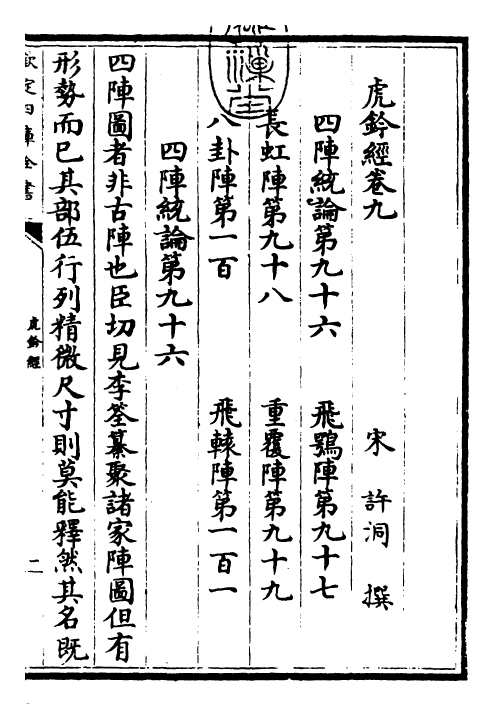 虎鈐經卷九
宋 許洞 撰
四陣統論第九十六 飛鶚陣第九十七
長虹陣第九十八 重覆陣第九十九
八卦陣第一百 飛轅陣第一百一
四陣統論第九十六
四陣圖者非古陣也臣切見李筌纂聚諸家陣圖但有
形勢而已其部伍行列精微尺寸則莫能釋然其名既
欽定四庫全書
虎鈐經
二